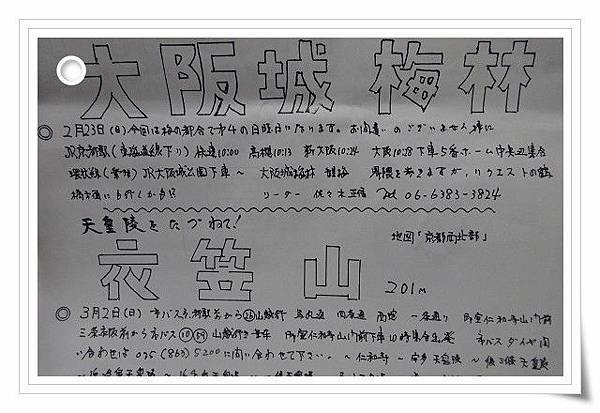 大阪城 梅林
2月23日(日)今回は梅の都合で第4の日曜日になります。お間違いのございません様に
JR京都駅(東海道線下り)快速10:00 高槻10:13 新大阪10:24 大阪10:28下車5番ホーム中央辺集合
環状線(乗換)JR大阪城公園下車～ 大阪城梅林 観梅 界隈を歩きますが、リクエストの鶴
橋市場にも行くかも!? リーダー 佐々木 Tel 06-6383-3824
天皇陵をたづねて!
地図「京都西北部」
衣笠山 201M
3月2日(日) 市バス京都駅前から㉖山越行 烏丸通 四条通 西院 御室仁和寺山門前
三条京阪前から市バス⑩ 山越行き乗車 御室仁和寺山門前下車10時集合出発 市バスダイヤ問
い合わせは 075(863)5200に問い合わせて下さい。～仁和寺～宇多天皇陵～後三條天皇